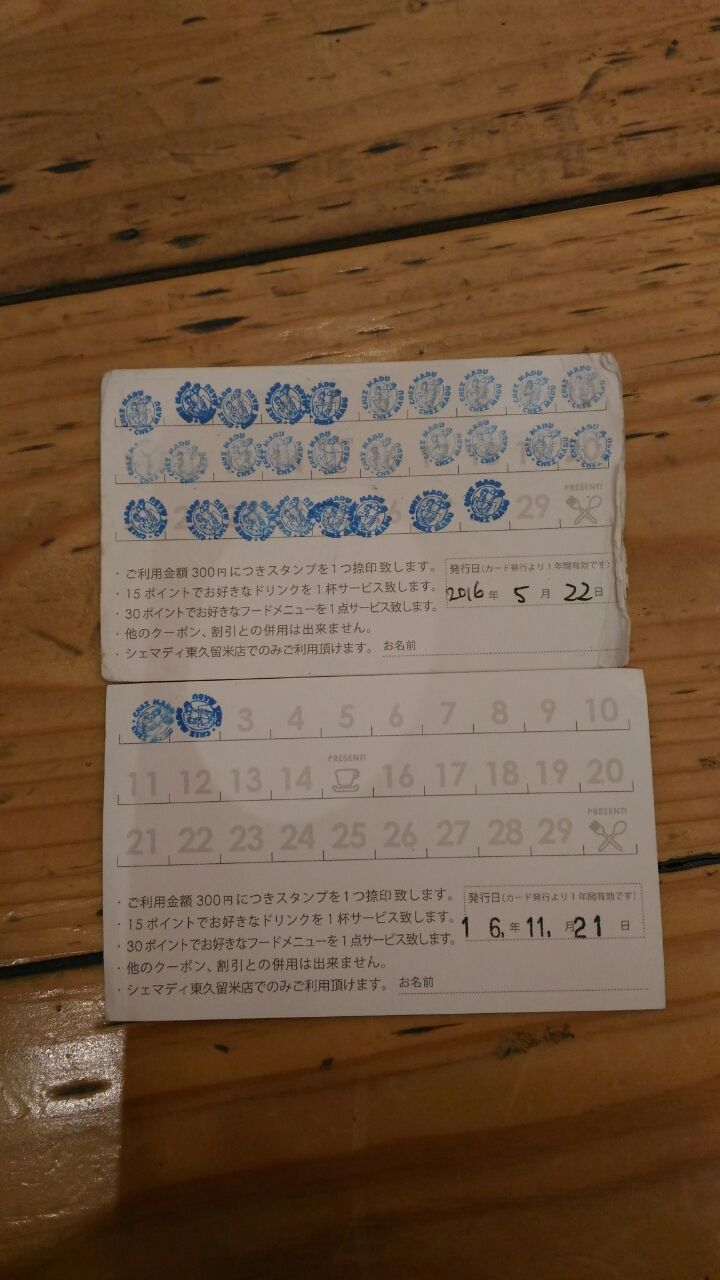 CHEZ MADU CHEZ MADU CHEZ MADU CHEZ MADU CHEZ MADU CHEZ MADU CHEZ MADU CHEZ MADU
CHEZ MADU CHEZ MADU CHEZ MADU CHEZ MADU CHEZ MADU
PRESENT!
29
・ご利用金額300円につきスタンプを1つ捺印致します。
・15ポイントでお好きなドリンクを1杯サービス致します。
・30ポイントでお好きなフードメニューを1点サービス致します。
・他のクーポン、割引との併用は出来ません。
・シェマディ東久留米店でのみご利用頂けます。
発行日(カード発行より1年間有効です)
2016年 5月 22日
お名前
CHEZ MADU CHEZ MADU 3 4 5 6 7 8 9 10
PRESENT!
11 12 13 14 16 17 18 19 20
PRESENT!
21 22 23 24 25 26 27 28 29
・ご利用金額300円につきスタンプを1つ捺印致します。
・15ポイントでお好きなドリンクを1杯サービス致します。
・30ポイントでお好きなフードメニューを1点サービス致します。
・他のクーポン、割引との併用は出来ません。
・シェマディ東久留米店でのみご利用頂けます。
発行日(カード発行より1年間有効です)
16,年11,月21日
お名前